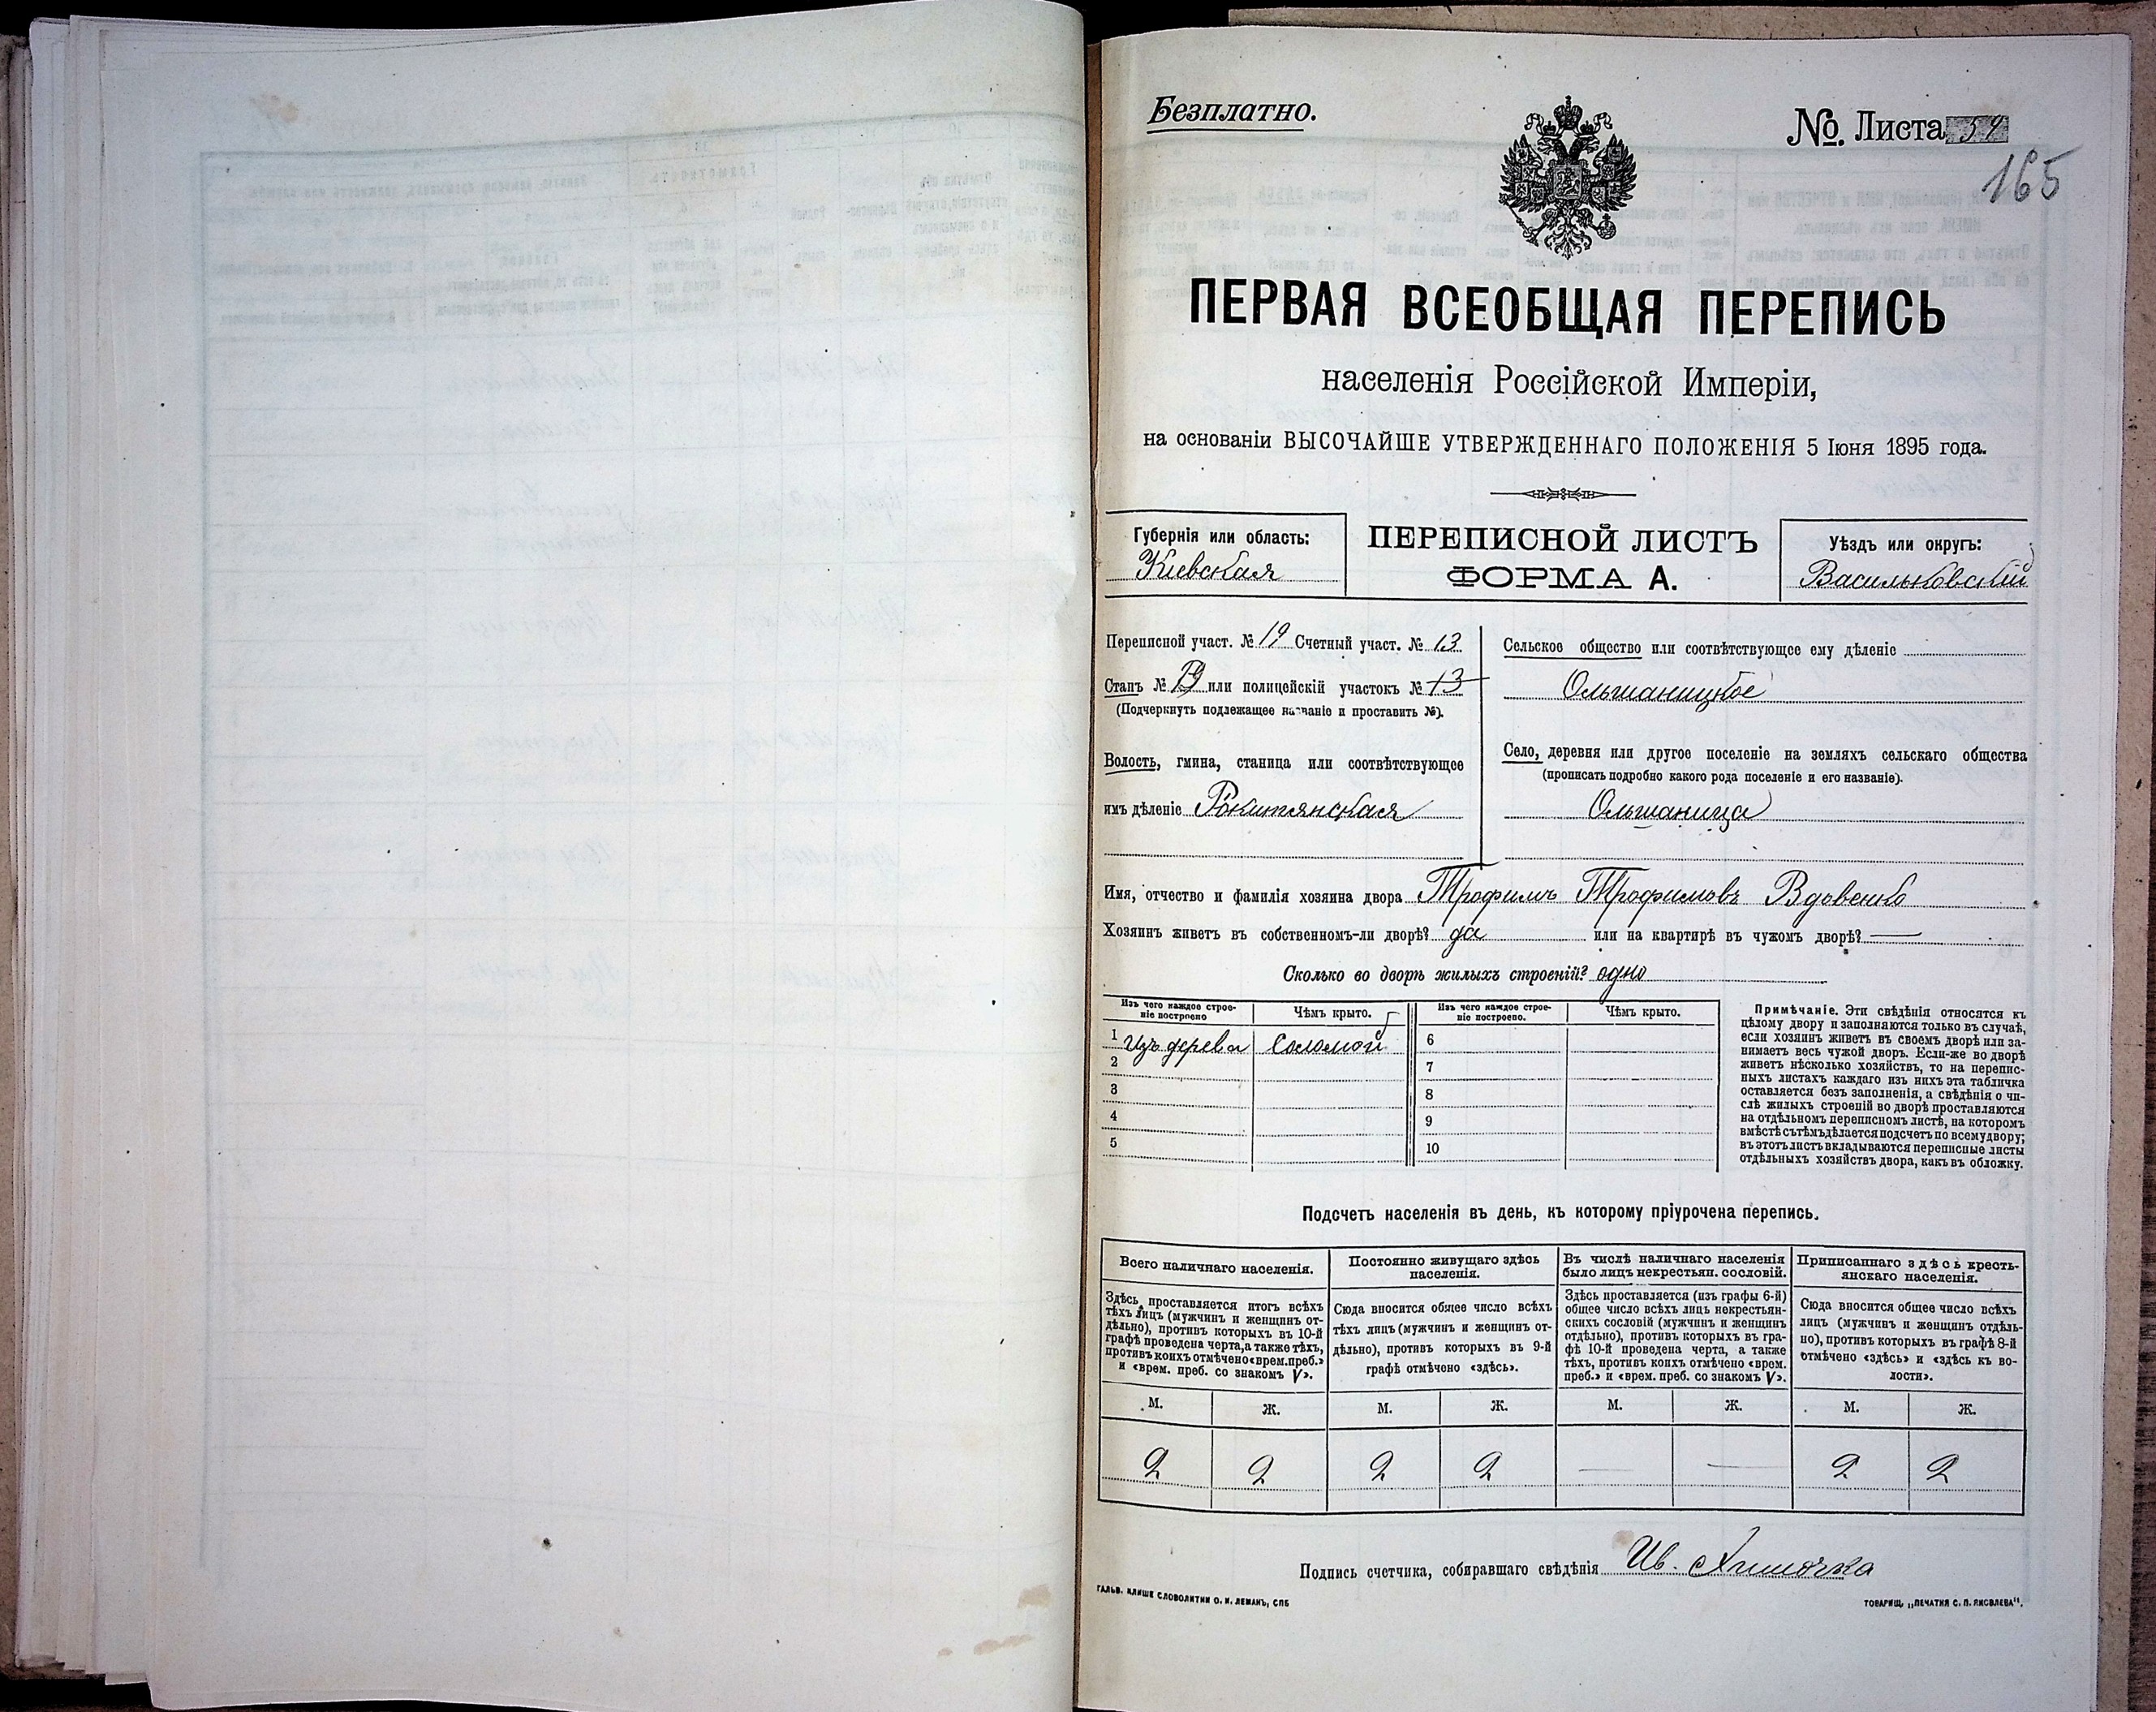 Безплатно.
№ Листа 59
165
ПЕРВАЯ ВСЕОБЩАЯ ПЕРЕПИСЬ
населенія Россійской Имперіи,
на основаніи ВЫСОЧАЙШЕ УТВЕРЖДЕННАГО ПОЛОЖЕНІЯ 5 Іюня 1895 года.
Губернія или область:
Кіевская
ПЕРЕПИСНОЙ ЛИСТЪ
ФОРМА А.
Уѣздъ или округъ:
Васильковскій
Переписной участ. № 19 Счетный участ. № 13
Станъ № или полицейскій участокъ № 13
(Подчеркнуть подлежащее названіе и проставить №).
Волость, гмина, станица или соотвѣтствующее
имъ дѣленіе Рокитянская
Сельское общество или соотвѣтствующее ему дѣленіе
Ольшаницкое
Село, деревня или другое поселеніе на земляхъ сельскаго общества
(прописать подробно какого рода поселеніе и его названіе).
Ольшаница
Имя, отчество и фамилія хозяина двора Трофимъ Трофимовъ Вдовенко
Хозяинъ живетъ въ собственномъ-ли дворѣ? да или на квартирѣ въ чужомъ дворѣ? —
Сколько во дворѣ жилыхъ строеній? одно
Изъ чего каждое строе-
ніе построено
Чѣмъ крыто.
Изъ чего каждое строе-
ніе построено.
Чѣмъ крыто.
1 Изъ дерева Соломой 6
2 7
3 8
4 9
5 10
Примѣчаніе. Эти свѣдѣнія относятся къ
цѣлому двору и заполняются только въ случаѣ,
если хозяинъ живетъ въ своемъ дворѣ или за-
нимаетъ весь чужой дворъ. Если-же во дворѣ
живетъ нѣсколько хозяйствъ, то на перепис-
ныхъ листахъ каждаго изъ нихъ эта табличка
оставляется безъ заполненія, а свѣдѣнія о чи-
слѣ жилыхъ строеній во дворѣ проставляются
на отдѣльномъ переписномъ листѣ, на которомъ
вмѣстѣ съ тѣмъ дѣлается подсчетъ по всему двору;
въ этотъ листъ вкладываются переписные листы
отдѣльныхъ хозяйствъ двора, какъ въ обложку.
Подсчетъ населенія въ день, къ которому пріурочена перепись.
Всего наличнаго населенія.
Здѣсь проставляется итогъ всѣхъ
тѣхъ лицъ (мужчинъ и женщинъ от-
дѣльно), противъ которыхъ въ 10-й
графѣ проведена черта, а также тѣхъ,
противъ коихъ отмѣчено «врем. преб.»
и «врем. преб. со знакомъ V».
Постоянно живущаго здѣсь
населенія.
Сюда вносится общее число всѣхъ
тѣхъ лицъ (мужчинъ и женщинъ от-
дѣльно), противъ которыхъ въ 9-й
графѣ отмѣчено «здѣсь».
Въ числѣ наличнаго населенія
было лицъ некрестьян. сословій.
Здѣсь проставляется (изъ графы 6-й)
общее число всѣхъ лицъ некрестьян-
скихъ сословій (мужчинъ и женщинъ
отдѣльно), противъ которыхъ въ гра-
фѣ 10-й проведена черта, а также
тѣхъ, противъ коихъ отмѣчено «врем.
преб.» и «врем. преб. со знакомъ V».
Приписаннаго здѣсь кресть-
янскаго населенія.
Сюда вносится общее число всѣхъ
лицъ (мужчинъ и женщинъ отдѣль-
но), противъ которыхъ въ графѣ 8-й
отмѣчено «здѣсь» и «здѣсь къ во-
лости».
М. Ж. М. Ж. М. Ж. М. Ж.
2 2 2 2 — — 2 2
Подпись счетчика, собиравшаго свѣдѣнія Ив.
ГАЛЬВ. КЛИШЕ СЛОВОЛИТНИ О. И. ЛЕМАНЪ, СПБ
ТОВАРИЩ. „ПЕЧАТНЯ С. П. ЯКОВЛЕВА“.